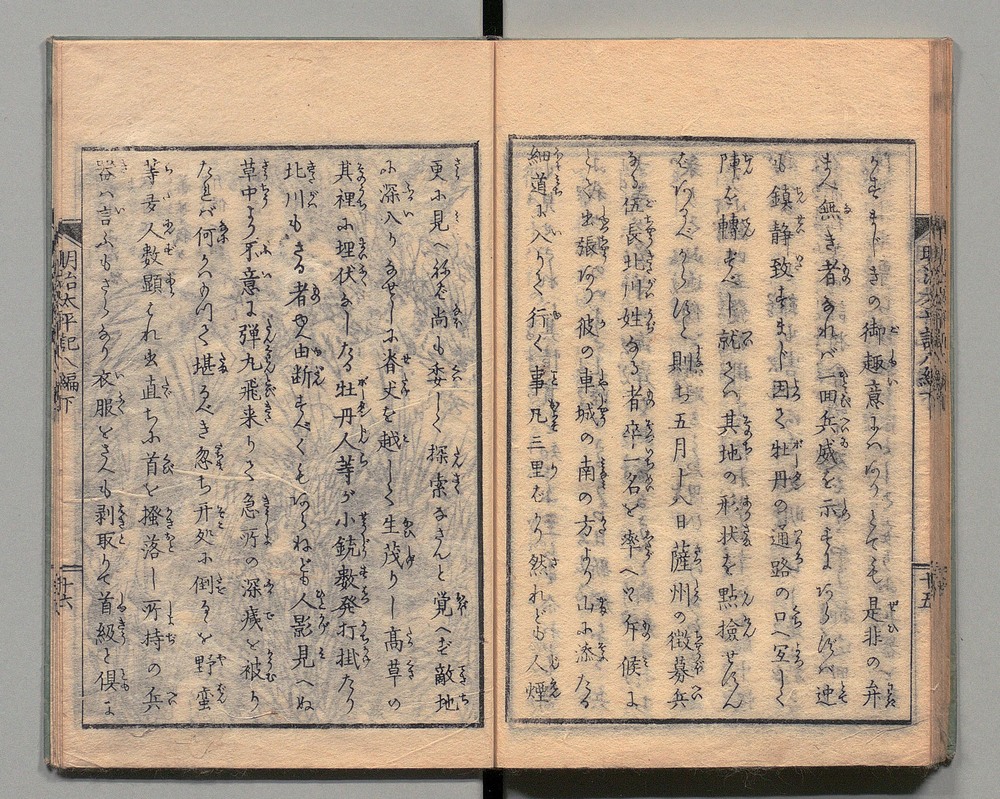 きの御趣意にハありとても是非の弁
まへ無き者なれバ一回兵威を示すにあらずバ迚
も鎮静致すまじ因て牡丹の通路の口へ宜しく
陣を轉ずべし就てハ其地の形状を點撿せずん
バあるべからずと則ち五月十八日薩州の徴募兵
なる伍長北川姓なる者卒一名を率へて斥候に
とて出張あり彼の車城の南の方より山に添たる
細道に入りて行く事凡三里むかり然れども人煙
更に見へねバ尚も委しく探索なさんと覚へず敵地
に深入りなせしに脊丈を越して生茂りし髙草の
其裡に埋伏なしたる牡丹人等が小銃数発打掛たり
北川もさる者や由断すべくもあらねども人影見へぬ
草中より不意に弾九飛来りて急所の深痍を被り
たれバ何かハ以て堪るべき忽ち其処に倒るを野蛮
等数人数顕ハれ出直ちに首を掻落し所持の兵
器ハ言ふもさらなり衣服をさへも剥取りて首級と倶に
明治太平記八編下
十五
明治太平記八編下
十六